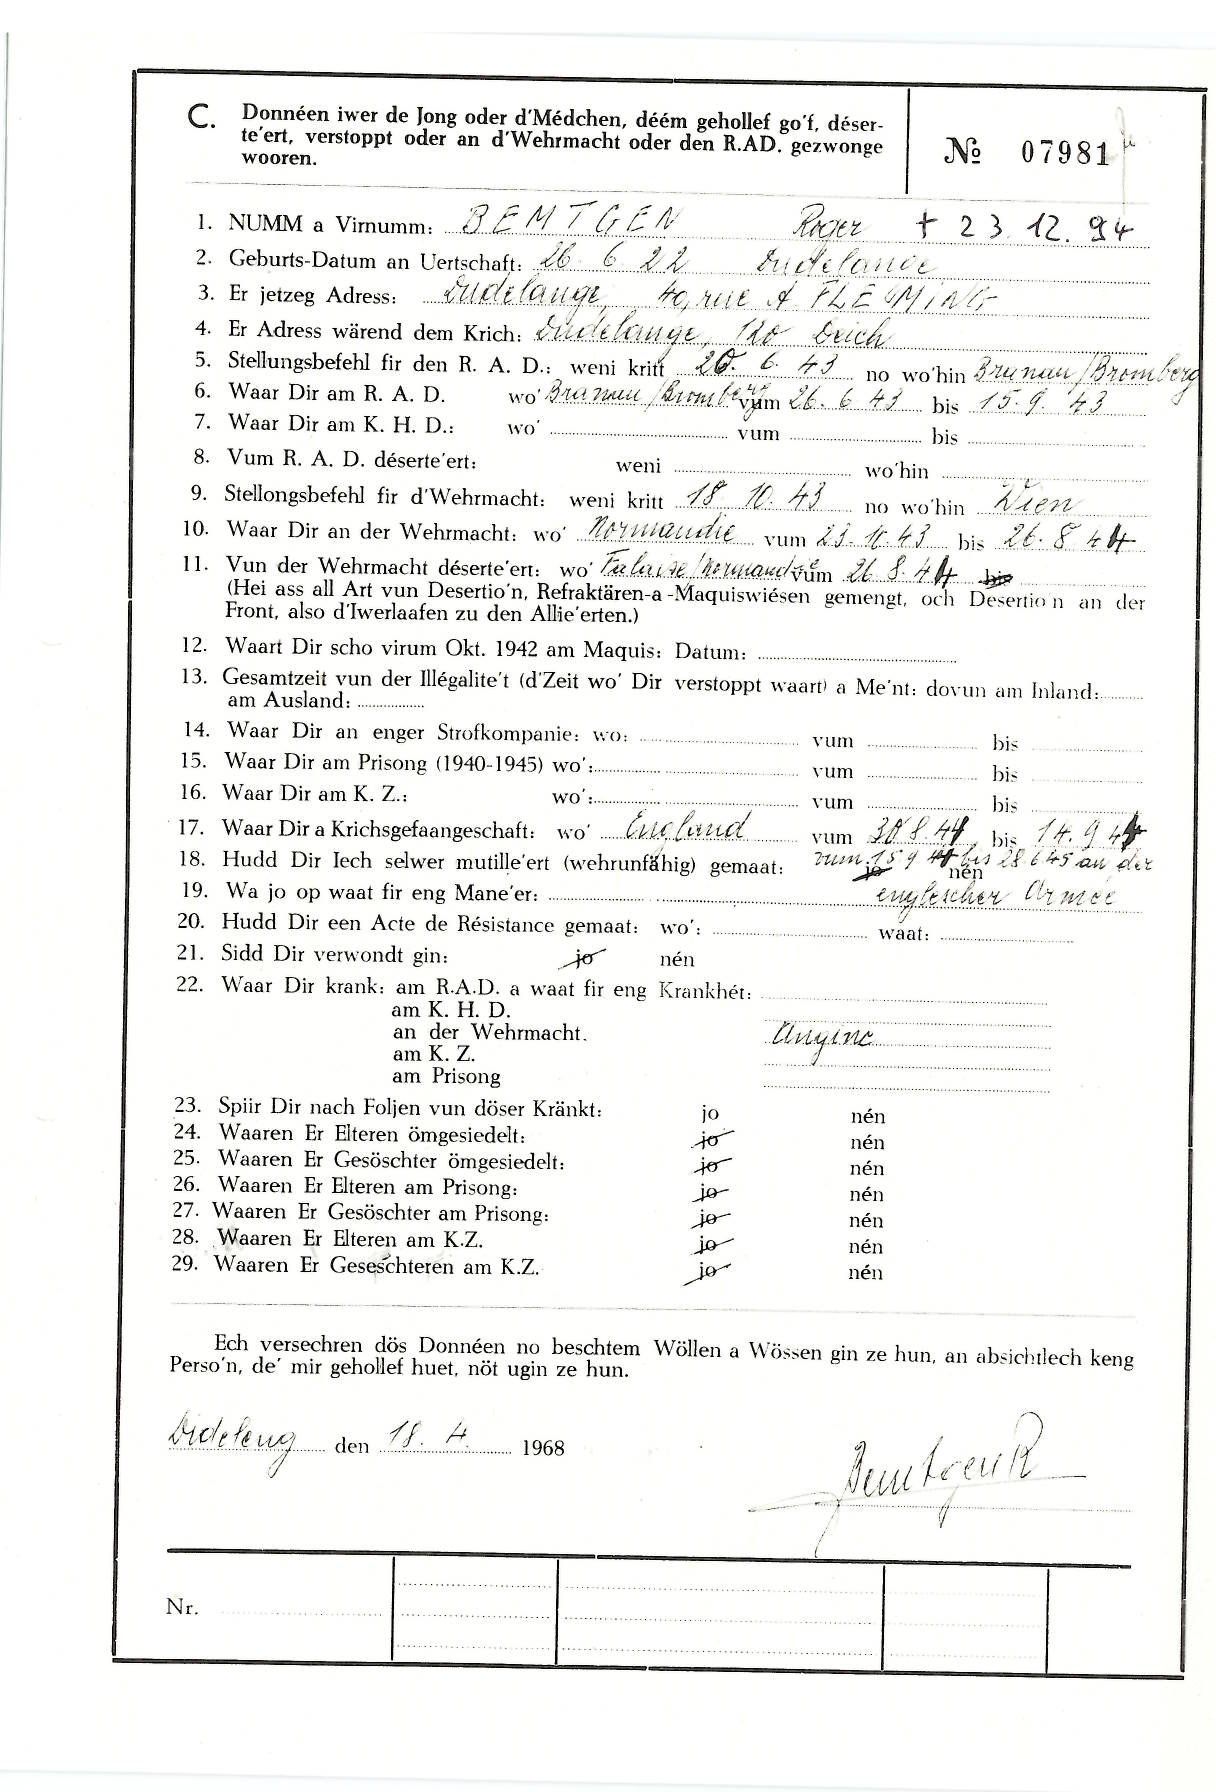 C. Donnéen iwer de Jong oder d'Médchen, déém gehollef go'f, déser-
te'ert, verstoppt oder an d'Wehrmacht oder den R.AD. gezwonge
wooren.
№ 07981
1. NUMM a Virnumm: BEMTGEN Roger † 23.12.94
2. Geburts-Datum an Uertschaft: 26 6 22 Dudelange
3. Er jetzeg Adress: Dudelange, 40, rue A FLEMING
4. Er Adress wärend dem Krich: Dudelange, 120 Deich
5. Stellungsbefehl fir den R. A. D.: weni kritt 20. 6. 43 no wo'hin Brunau/Bromberg
6. Waar Dir am R. A. D. wo' Bramau/Bromberg vum 26. 6 43 bis 15. 9. 43
7. Waar Dir am K. H. D.: wo' vum bis
8. Vum R. A. D. déserte'ert: weni wo'hin
9. Stellongsbefehl fir d'Wehrmacht: weni kritt 18 10. 43 no wo'hin Wien
10. Waar Dir an der Wehrmacht: wo' Normandie vum 23. 10. 43 bis 26. 8 44
11. Vun der Wehrmacht déserte'ert: wo' Falaise/Normandie vum 26 8. 44 bis
(Hei ass all Art vun Desertio'n, Refraktären-a -Maquiswiésen gemengt, och Desertio n an der
Front, also d'Iwerlaafen zu den Allie'erten.)
12. Waart Dir scho virum Okt. 1942 am Maquis: Datum:
13. Gesamtzeit vun der Illégalite't (d'Zeit wo' Dir verstoppt waart) a Me'nt: dovun am Inland:
am Ausland:
14. Waar Dir an enger Strofkompanie: wo: vum bis
15. Waar Dir am Prisong (1940-1945) wo': vum bis
16. Waar Dir am K. Z.: wo': vum bis
17. Waar Dir a Krichsgefaangeschaft: wo' England vum 30 8. 44 bis 14. 9 44
18. Hudd Dir Iech selwer mutille'ert (wehrunfähig) gemaat: jo nén
vum 15 9 44 bis 28 6 45 an der
19. Wa jo op waat fir eng Mane'er: englescher Armee
20. Hudd Dir een Acte de Résistance gemaat: wo': waat:
21. Sidd Dir verwondt gin: jo nén
22. Waar Dir krank: am R.A.D. a waat fir eng Krankhét:
am K. H. D.
an der Wehrmacht. Angine
am K. Z.
am Prisong
23. Spiir Dir nach Foljen vun döser Kränkt: jo nén
24. Waaren Er Elteren ömgesiedelt: jo nén
25. Waaren Er Gesöschter ömgesiedelt: jo nén
26. Waaren Er Elteren am Prisong: jo nén
27. Waaren Er Gesöschter am Prisong: jo nén
28. Waaren Er Elteren am K.Z. jo nén
29. Waaren Er Geseschteren am K.Z. jo nén
Ech versechren dös Donnéen no beschtem Wöllen a Wössen gin ze hun, an absichtlech keng
Perso'n, de' mir gehollef huet, nöt ugin ze hun.
Dideleng den 18. 4. 1968
Bemtgen R
Nr.